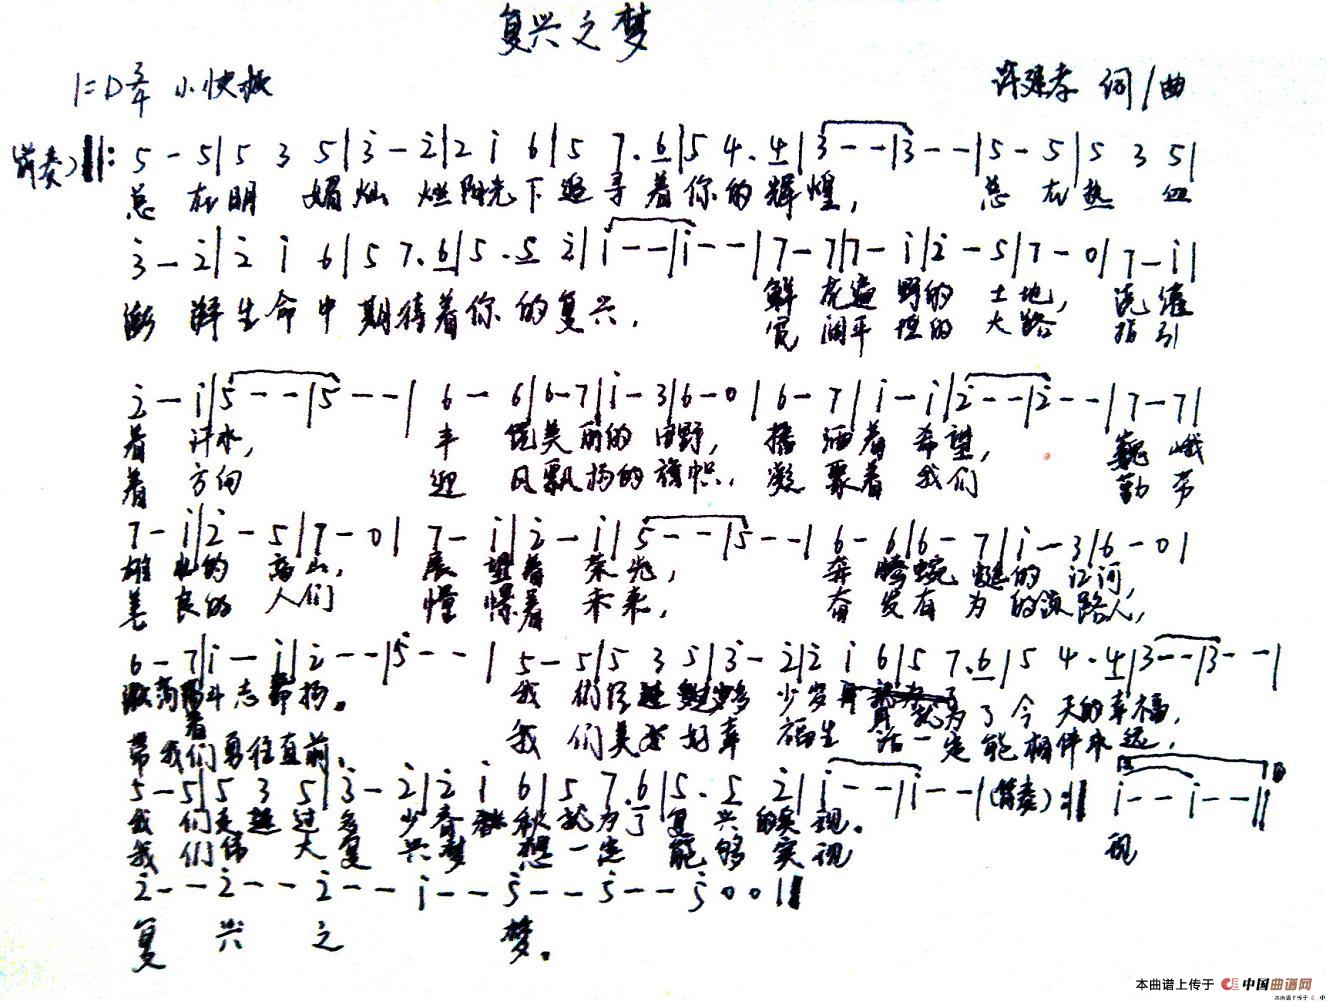 复兴之梦
1=D 3/4 小快板 许建孝 词/曲
前奏) ‖: 5 - 5 | 5 3 5 | 3̇ - 2̇ | 2̇ i 6 | 5 7. 6 | 5 4. 4 | 3 - - | 3 - - | 5 - 5 | 5 3 5 |
总 在明 媚灿 烂阳光下追寻着你的辉煌, 总 在热 血
3̇ - 2̇ | 2̇ i 6 | 5 7. 6 | 5 . 5 2̇ | i - - | i - - | 7 - 7 | 7 - i | 2̇ - 5 | 7 - 0 | 7 - i |
澎 湃生命中期待着你的复兴. 鲜 花遍 野的 土地, 浇灌
宽 阔平 坦的 大路 指引
2̇ - i | 5 - - | 5 - - | 6 - 6 | 6 - 7 | i - 3 | 6 - 0 | 6 - 7 | i - i | 2̇ - - | 2̇ - - | 7 - 7 |
着 汗水, 丰 饶美丽的田野, 播 洒着 希望, 巍峨
着 方向 迎 风飘扬的旗帜. 凝 聚着 我们 勤劳
7 - i | 2̇ - 5 | 7 - 0 | 7 - i | 2̇ - i | 5 - - | 5 - - | 6 - 6 | 6 - 7 | i - 3 | 6 - 0 |
雄壮的 高山, 展 望着 荣光, 奔 腾蜿蜒的 江河,
善良的 人们 憧 憬着 未来, 奋 发有 为的领路人,
6 - 7 | i - i | 2̇ - - | 5 - - | 5 - 5 | 5 3 5 | 3̇ - 2̇ | 2̇ i 6 | 5 7. 6 | 5 4. 4 | 3 - - | 3 - - |
激荡着斗志昂扬。 我 们 多 少岁月就为了今天的幸福,
带我们勇往直前. 我 们美好幸 福生 活一定能相伴永远,
5 - 5 | 5 3 5 | 3̇ - 2̇ | 2̇ i 6 | 5 7. 6 | 5. 5 2̇ | i - - | i - - | (前奏) :‖ i - - i - - ‖
我 们走 过多 少春 秋就为了复兴的实现。 现
我 们伟 大复 兴梦 想一定能够实现
2̇ - - 2̇ - - 2̇ - - i - - 5 - - 5 - - 5 0 0 ‖
复 兴 之 梦。
本曲谱上传于 中国曲谱网